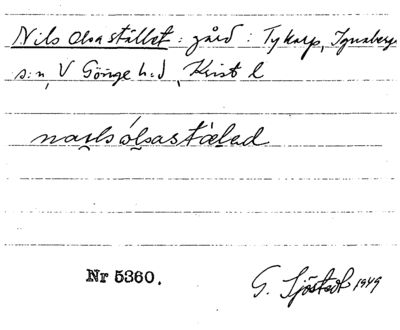 Nils Olsastället : gård : Tykarp, Ignaberga
s:n, V Göinge h:d, Krist l
na̯ılsólsastælɛd
Nr 5360.
G. Sjöstedt 1949